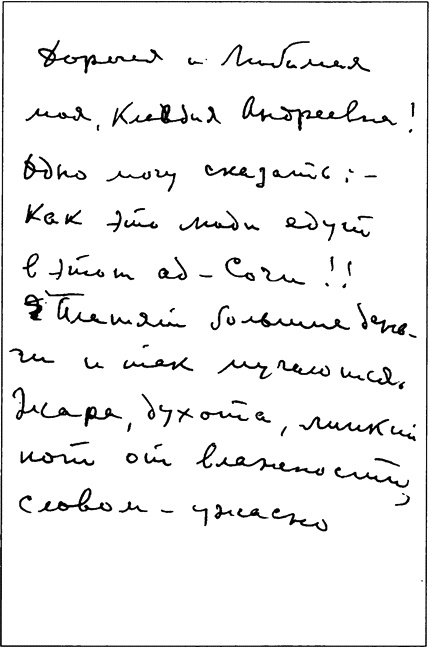 Дорогая и Любимая
моя, Клавдия Андреевна!
Одно могу сказать: –
Как это люди едут
в этот ад – Сочи!!
Платят большие день-
ги и так мучаются.
Жара, духота, липкий
пот от влажности,
словом – ужасно